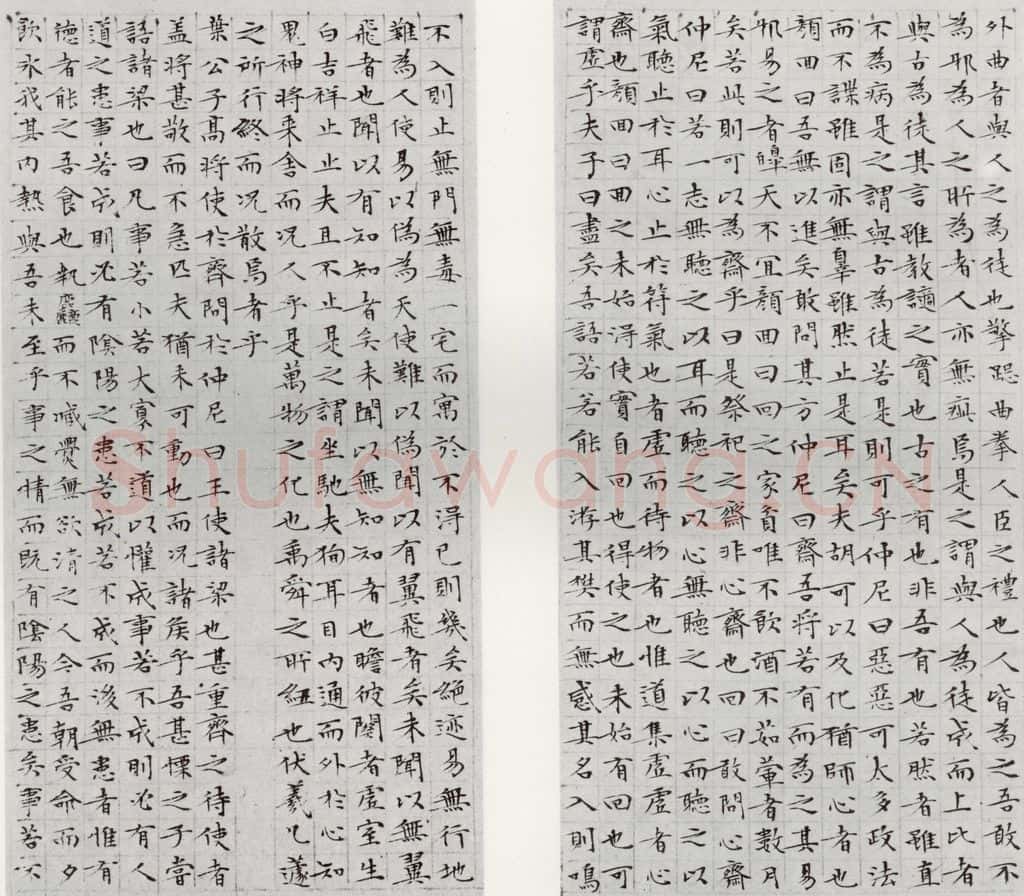 外曲者與人之為徒也擎跽曲拳人臣之禮也人皆為之吾敢不
為邪為人之所為者人亦無疵焉是之謂與人為徒成而上比者
與古為徒其言雖教讁之實也古之有也非吾有也若然者雖直
不為病是之謂與古為徒若是則可乎仲尼曰惡惡可太多政法
而不諜雖固亦無辠雖然止是耳矣夫胡可以及化猶師心者也
顏回曰吾無以進矣敢問其方仲尼曰齋吾將若有而為之其易
邪易之者皞天不宜顏回曰回之家貧唯不飲酒不茹葷者數月
矣若此則可以為齋乎曰是祭祀之齋非心齋也回曰敢問心齋
仲尼曰若一志無聽之以耳而聽之以心無聽之以心而聽之以
氣聽止於耳心止於符氣也者虛而待物者也惟道集虛虛者心
齋也顏回曰回之未始得使實自回也得使之也未始有回也可
謂虛乎夫子曰盡矣吾語若若能入游其樊而無感其名入則鳴
不入則止無門無毒一宅而寓於不得已則幾矣絕迹易無行地
難為人使易以偽為天使難以偽聞以有翼飛者矣未聞以無翼
飛者也聞以有知知者矣未聞以無知知者也瞻彼闋者虛室生
白吉祥止止夫且不止是之謂坐馳夫徇耳目內通而外於心知
鬼神將來舍而況人乎是萬物之化也禹舜之所紐也伏羲几蘧
之所行終而況散焉者乎
葉公子高將使於齊問於仲尼曰王使諸梁也甚重齊之待使者
蓋將甚敬而不急匹夫猶未可動也而況諸侯乎吾甚慄之子嘗
語諸梁也曰凡事若小若大寡不道以懽成事若不成則必有人
道之患事若成則必有陰陽之患若成若不成而後無患者惟有
德者能之吾食也執麤而不臧爨無欲清之人今吾朝受命而夕
飲冰我其內熱與吾未至乎事之情而既有陰陽之患矣事若不
Shufawang.CN